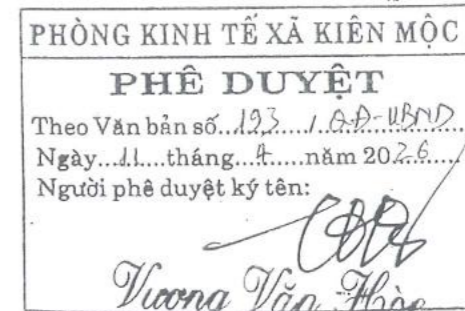 PHÒNG KINH TẾ XÃ KIÊN MỘC
PHÊ DUYỆT
Theo Văn bản số...193...../.QĐ-UBND
Ngày...11....tháng...4.....năm 2026.......
Người phê duyệt ký tên:
Vương Văn Hòa